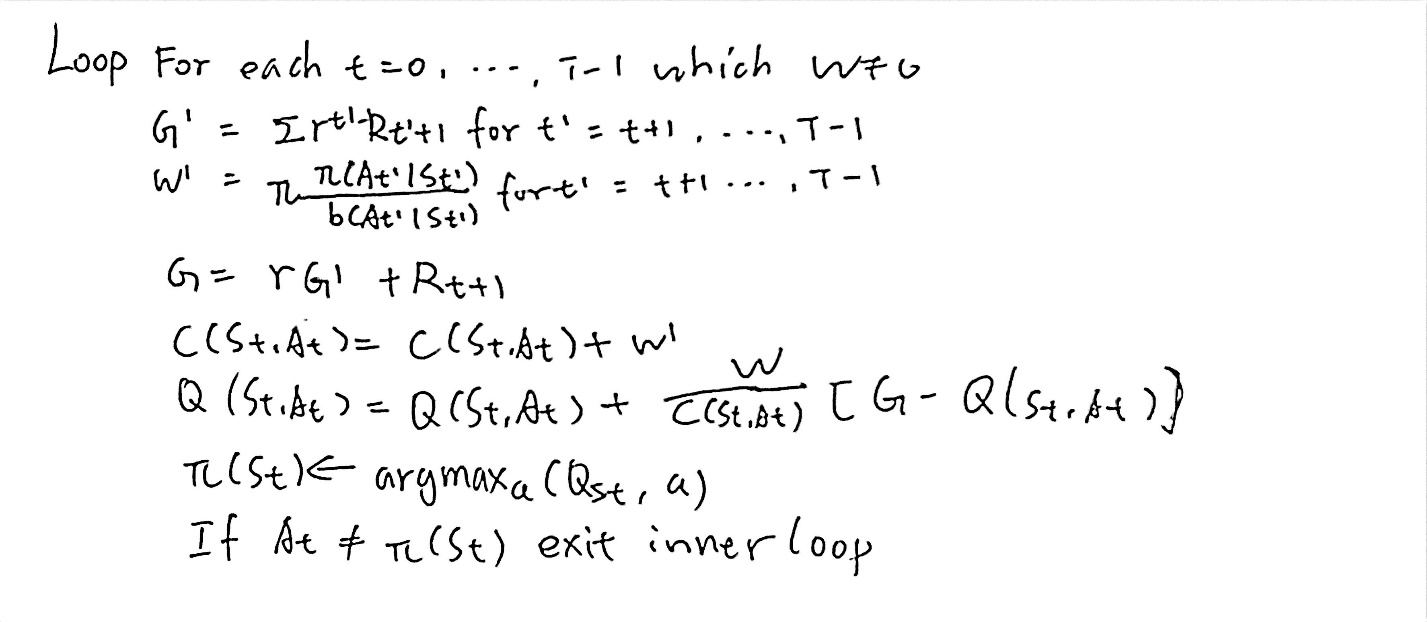 Loop For each t=0, ..., T-1 which W≠0
G' = Σrt'-Rt'+1 for t' = t+1, ..., T-1
W' = π π(At'|St')/b(At'|St') for t' = t+1 ..., T-1
G = rG' + Rt+1
C(St,At) = C(St,At) + W'
Q(St,At) = Q(St,At) + W/C(St,At) [G - Q(St,At)]
π(St) ← argmaxa (Qst, a)
If At ≠ π(St) exit inner loop